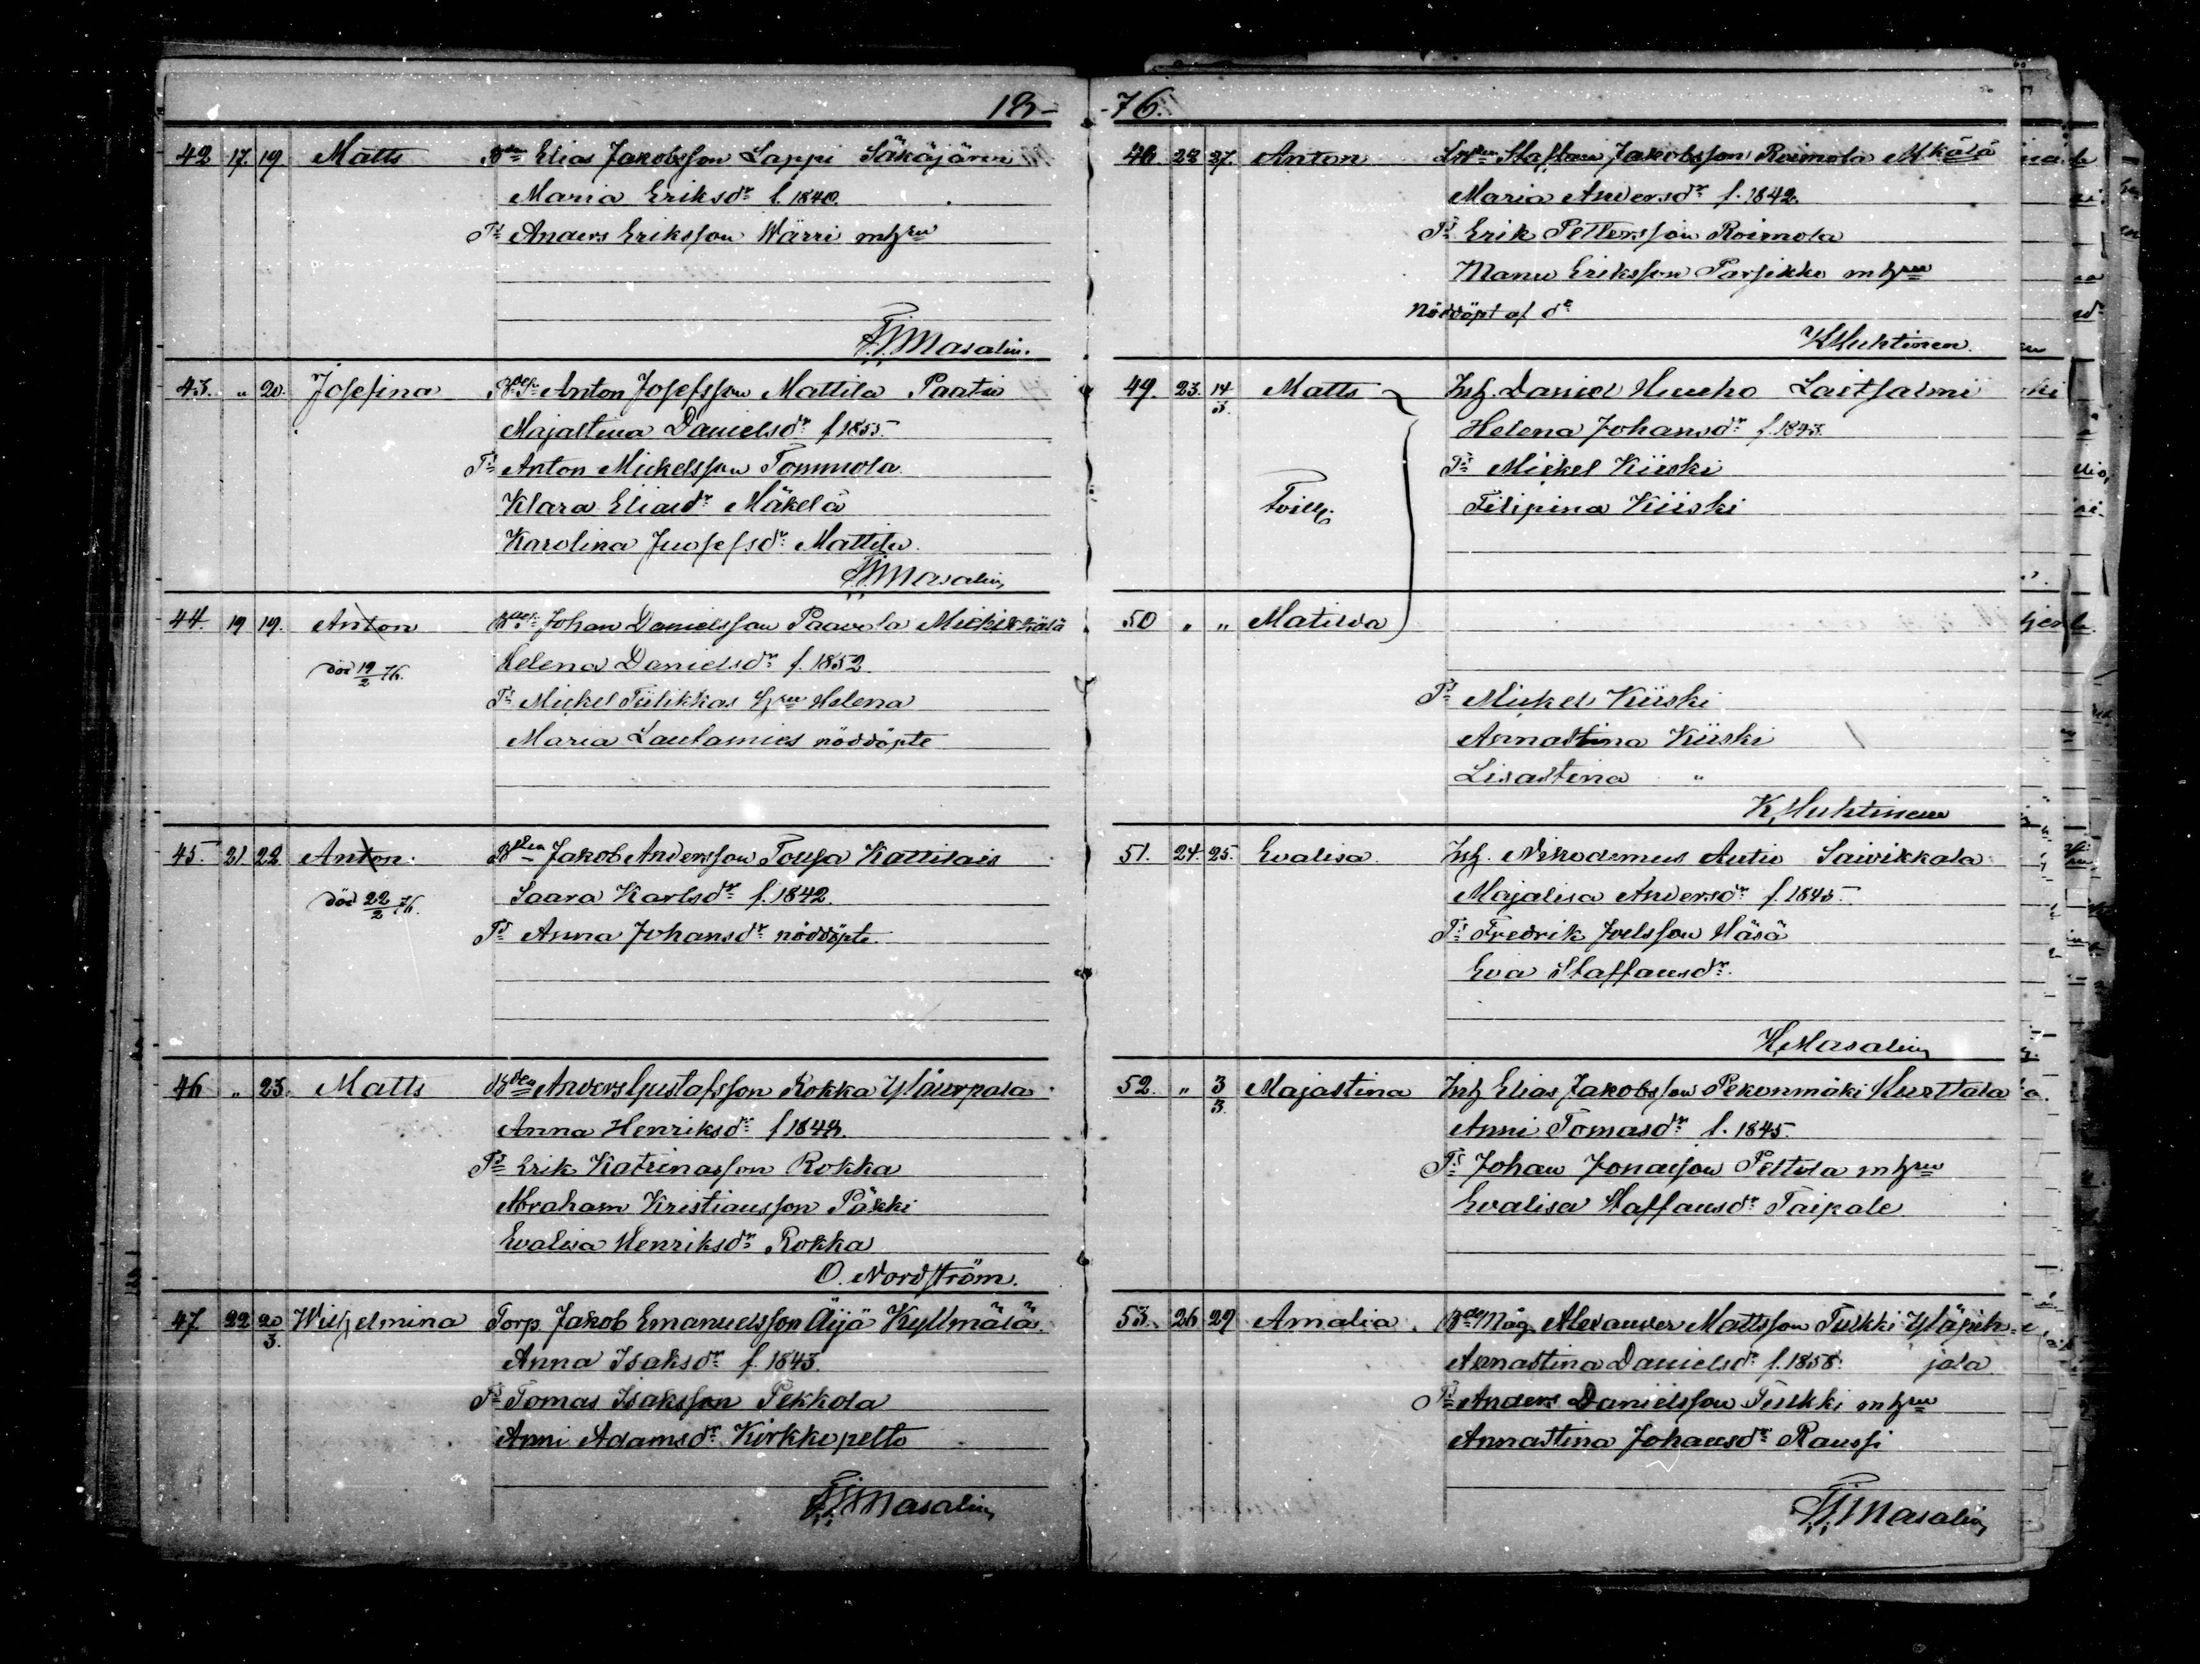 18-
42 17. 19 Matts Bden Elias Jakobsson Lappi Säkäjärvi
Maria Eriksdr f. 1840.
Ts Anders Eriksson Wärri mhru
Masalin.
43. " 20. Josefina Anton Josefsson Mattila Paatio
Majastina Danielsdr f 1855.
Ts Anton Mickelsson Tommola
Klara Eliaedr Mäkelä
Karolina Juosefsdr Mattila.
Masalin
44. 19 19. Anton Johan Danielsson Paavola
död 19/2 76. Helena Danielsdr f. 1852.
Ts Mickel Tülikkas hru Helena
Maria Lautamies nöddöpte
45. 21 22 Anton. Bden Jakob Andersson Tousa Kattilais
död 22/2 76. Saara Karlsdr f. 1842.
Ts Anna Johansdr nöddöpte.
46 " 23. Matts Bden Anders Gustafsson Rokka Yläurpala
Anna Henriksdr f
Ts Erik Katrinasson Rokka
Abraham Kristiansson Päkki
Evalisa Henriksdr Rokka
O. Nordström.
47 22 20/3. Wilhelmina Torp. Jakob Emanuelsson Äijä Kyllmälä.
Anna Isaksdr f. 1843.
Ts Tomas Isaksson Pekkola
Anni Adamsdr Kirkkopelto
Masalin
-76.
27. Anton Staffan Jakobsson Roimola Mkälä
Maria Andersdr f. 1842.
Ts Erik Pettersson Roimola
Manu Eriksson Parsikko mhru
Nöddöpt af dr
K Huhtinen.
49. 23. 14/3. Matts Inh. Daniel Huuho Laitsalmi
Helena Johansdr f. 1843.
Ts Mickel Kiiski
Tvill. Filipina Kiiski
50 " " Matilda
Ts Mickel Kiiski
Annastina Kiiski
Lisastina "
K, Huhtinen
51. 24. 25. Evalisa. Inh. Nikodemus Autio Saivikkala
Majalisa Andersdr f. 1845.
Ts Fredrik Joelsson Häsä
Eva Staffansdr.
Masalin
52. " 3/3 Majastina Inh Elias Jakobsson Pekonmäki Hurttala
Anni Tomasdr f. 1845.
Ts Johan Jonasson Peltola mhru
Evalisa Staffansdr Taipale
53. 26 29 Amalia. Måg. Alexander Mattsson Tulkki Yläpih=
Annastina Danielsdr f. 1858. jala
Ts Anders Danielsson Tulkki mhru
Annastina Johansdr Raussi
Masalin